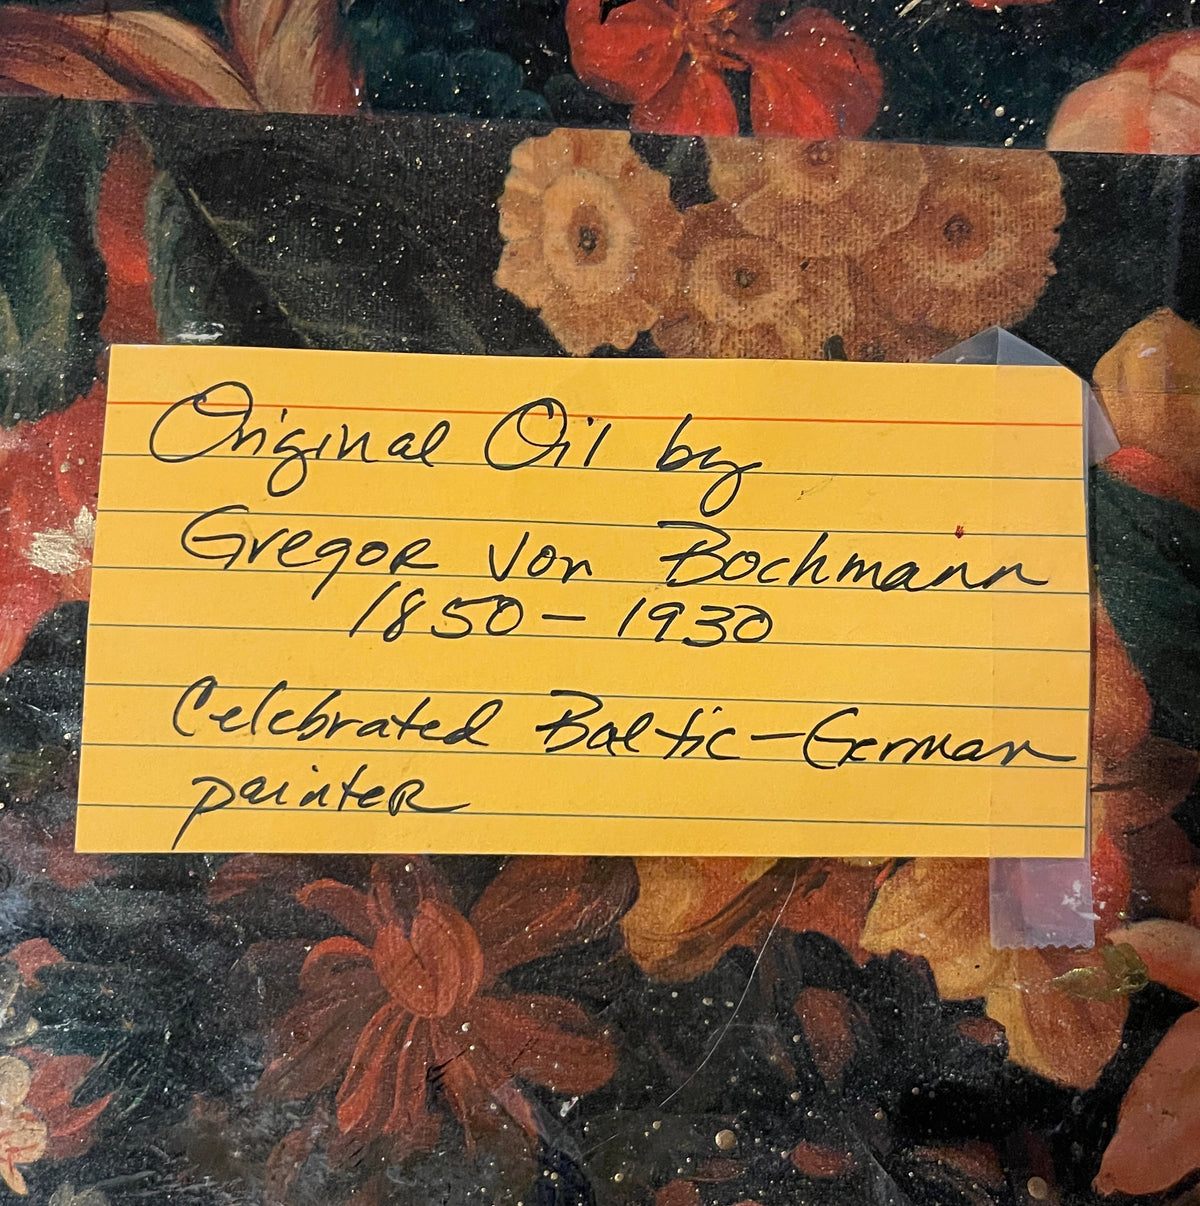 Original Oil by
Gregor von Bochmann
1850 - 1930
Celebrated Baltic-German
painter